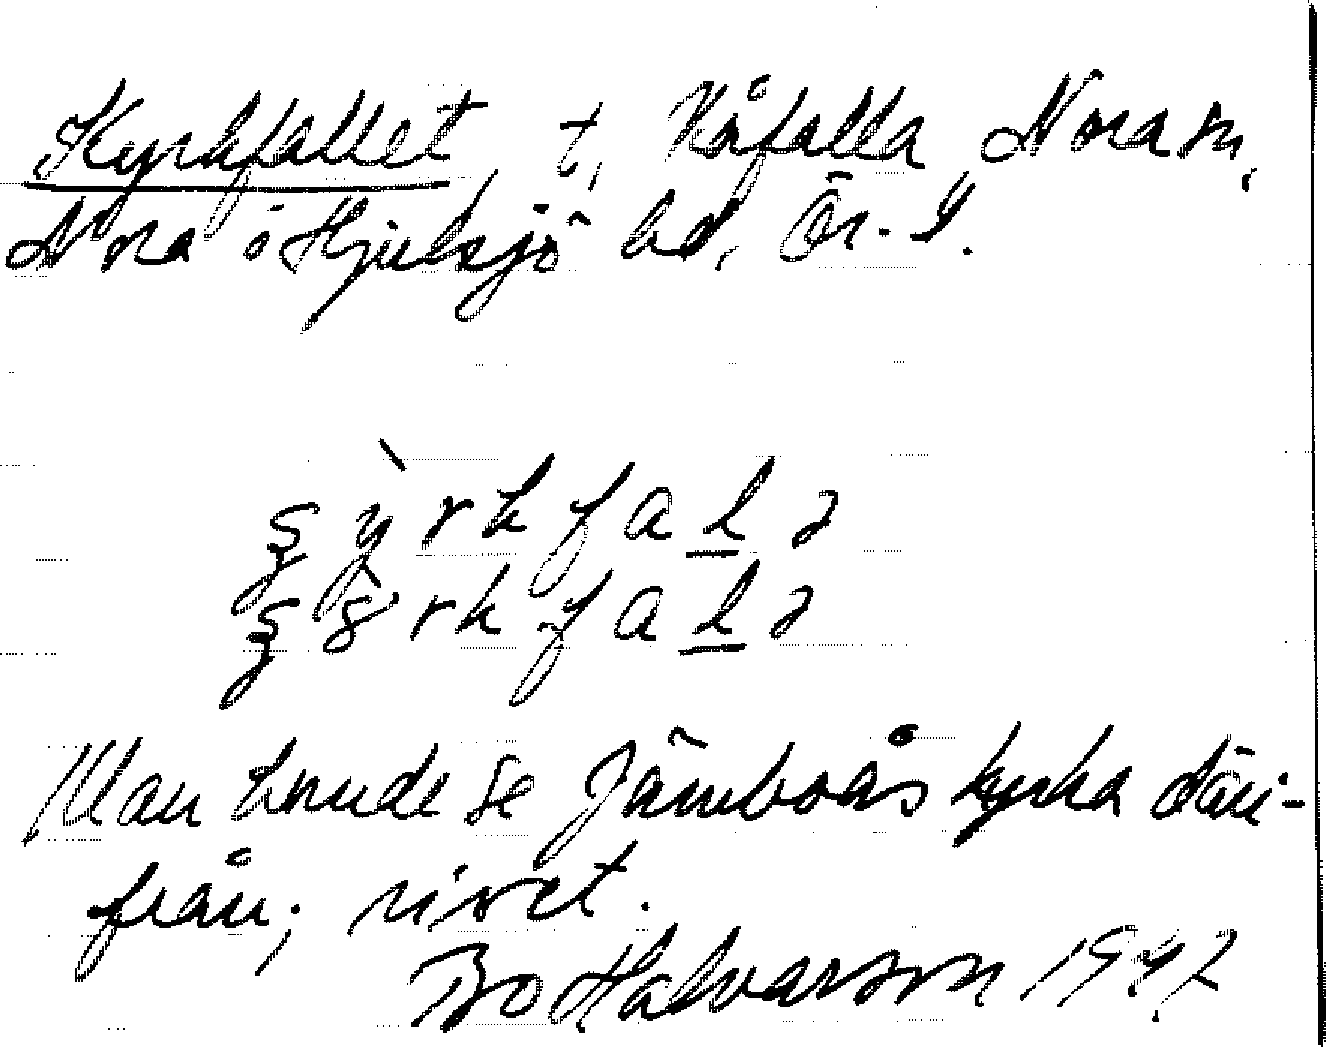 Kyrkfallet, t, Kåfalla, Nora sn,
Nora o Hjulsjö bd, Ör. l.
ş y̆̀rkfalə
ş 8̀rkfalə
Man kunde se Järnboås kyrka däri-
från; rivet.
Bo Halvarson 1947